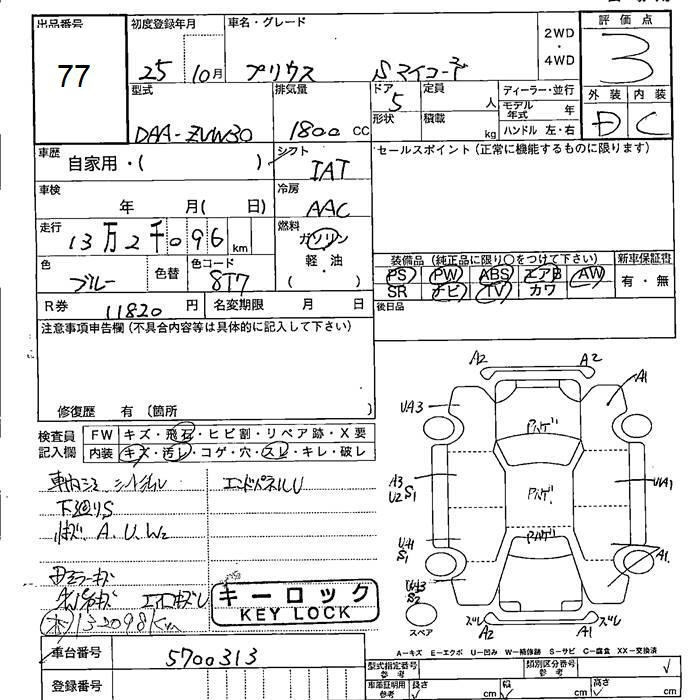 出品番号
77
初度登録年月
25 10月
車名・グレード
プリウス Sマイコーデ
2WD
・
4WD
評価点
3
外装 内装
D C
型式
DAA-ZVW30
排気量
1800 cc
ドア
5
形状
定員 人
積載 kg
ディーラー・並行
モデル年式 年
ハンドル 左・右
車歴
自家用・( )
シフト
IAT
セールスポイント(正常に機能するものに限ります)
車検
年 月( 日)
冷房
AAC
走行
13万2千096 km
燃料
ガソリン
軽・油
( )
色
ブルー
色替
色コード
8T7
装備品(純正品に限り○をつけて下さい)
新車保証書
PS PW ABS エアB AW
SR ナビ TV カワ
有・無
R券 11820 円
名変期限 月 日
後日品
注意事項申告欄(不具合内容等は具体的に記入して下さい)
修復歴 有 (箇所 )
検査員
記入欄
FW キズ・飛石・ヒビ割・リペア跡・X要
内装 キズ・汚レ・コゲ・穴・スレ・キレ・破レ
エンドパネルU
下廻りS
A. U. W2
キーロック
KEY LOCK
132098Km
A2 A2
UA3 A1
A3
U2 S1
UA1
S1
A1.
S2
ズレ A2 A1 ズレ
スペア
A−キズ E−エクボ U−凹み W−補修跡 S−サビ C−腐食 XX−交換済
車台番号
5700313
登録番号
型式指定番号
参考
類別区分番号
参考
車庫証明用
参考
長さ cm
幅 cm
高さ cm